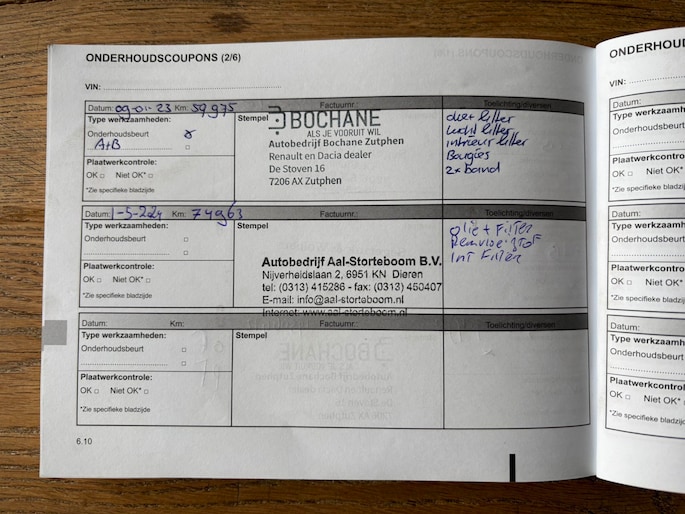 ONDERHOUDSCOUPONS (2/6)
VIN:
Datum: 09-01-23 Km: 59975 Factuurnr.: Toelichting/diversen
Type werkzaamheden:
Onderhoudsbeurt
A+B
Plaatwerkcontrole:
OK Niet OK*
*Zie specifieke bladzijde
Stempel
BOCHANE
ALS JE VOORUIT WIL
Autobedrijf Bochane Zutphen
Renault en Dacia dealer
De Stoven 16
7206 AX Zutphen
filter
lucht filter
interieur filter
Bougies
2x band
Datum: 1-5-2024 Km: 74963 Factuurnr.: Toelichting/diversen
Type werkzaamheden:
Onderhoudsbeurt
Plaatwerkcontrole:
OK Niet OK*
*Zie specifieke bladzijde
Stempel
Autobedrijf Aal-Storteboom B.V.
Nijverheidslaan 2, 6951 KN Dieren
tel: (0313) 415286 - fax: (0313) 450407
E-mail: info@aal-storteboom.nl
Internet: www.aal-storteboom.nl
olie + Filter
Remvloeistof
Int Filter
Datum: Km: Factuurnr.: Toelichting/diversen
Type werkzaamheden:
Onderhoudsbeurt
Plaatwerkcontrole:
OK Niet OK*
*Zie specifieke bladzijde
Stempel
6.10
ONDERHOUD
VIN:
Datum:
Type werkzaam
Onderhoudsbeur
Plaatwerkcontrol
OK Niet OK*
*Zie specifieke bladz
Datum:
Type werkzaamh
Onderhoudsbeurt
Plaatwerkcontrole
OK Niet OK*
*Zie specifieke bladzij
Datum:
Type werkzaamhe
Onderhoudsbeurt
Plaatwerkcontrole
OK Niet OK*
*Zie specifieke bladzijd